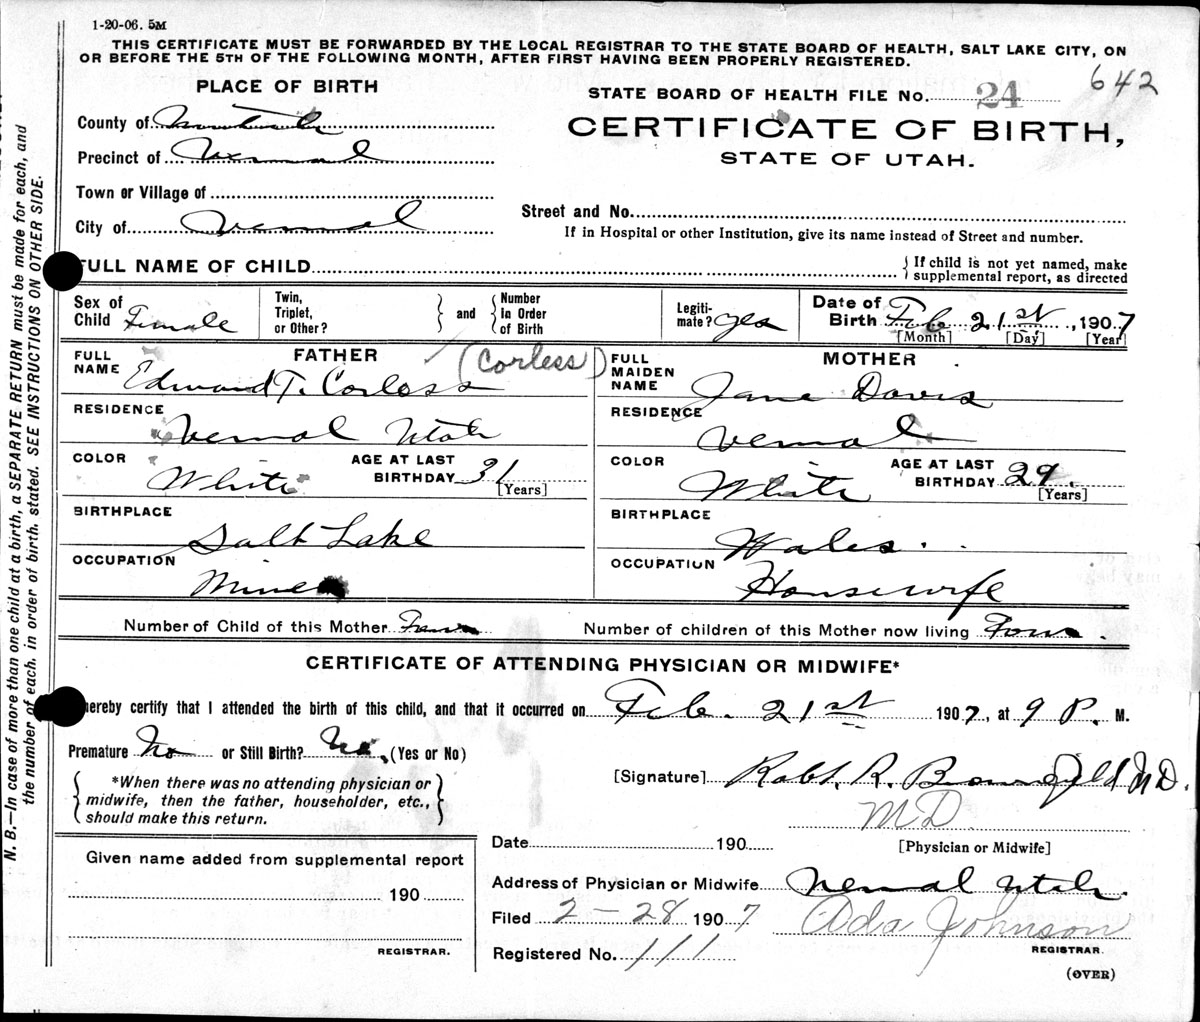 1-20-06. 5M
THIS CERTIFICATE MUST BE FORWARDED BY THE LOCAL REGISTRAR TO THE STATE BOARD OF HEALTH, SALT LAKE CITY, ON
OR BEFORE THE 5TH OF THE FOLLOWING MONTH, AFTER FIRST HAVING BEEN PROPERLY REGISTERED.
642
PLACE OF BIRTH
STATE BOARD OF HEALTH FILE No. 24
County of
CERTIFICATE OF BIRTH,
Precinct of Vernal
STATE OF UTAH.
Town or Village of
City of Vernal
Street and No.
If in Hospital or other Institution, give its name instead of Street and number.
FULL NAME OF CHILD
{ If child is not yet named, make
supplemental report, as directed
Sex of Child Female
Twin, Triplet, or Other? } and { Number In Order of Birth
Legiti-mate? yes
Date of Birth Feb 21st, 1907
[Month] [Day] [Year]
FULL NAME FATHER (Corless)
Edward T. Corless
FULL MAIDEN NAME MOTHER
Jane Davis
RESIDENCE Vernal Utah
RESIDENCE Vernal
COLOR White AGE AT LAST BIRTHDAY 31 [Years]
COLOR White AGE AT LAST BIRTHDAY 29. [Years]
BIRTHPLACE Salt Lake
BIRTHPLACE Wales.
OCCUPATION Miner
OCCUPATION Housewife
Number of Child of this Mother Four
Number of children of this Mother now living Four.
CERTIFICATE OF ATTENDING PHYSICIAN OR MIDWIFE*
hereby certify that I attended the birth of this child, and that it occurred on Feb. 21st 1907, at 9 P. M.
Premature No or Still Birth? No. (Yes or No)
[Signature] Robt. R. Brownfield M.D.
{ *When there was no attending physician or
midwife, then the father, householder, etc.,
should make this return. }
MD
[Physician or Midwife]
Date 190
Given name added from supplemental report
190
REGISTRAR.
Address of Physician or Midwife Vernal Utah.
Filed 2-28 1907 Ada Johnson
REGISTRAR.
Registered No. 111
(OVER)
N. B.—In case of more than one child at a birth, a SEPARATE RETURN must be made for each, and
the number of each, in order of birth, stated. SEE INSTRUCTIONS ON OTHER SIDE.